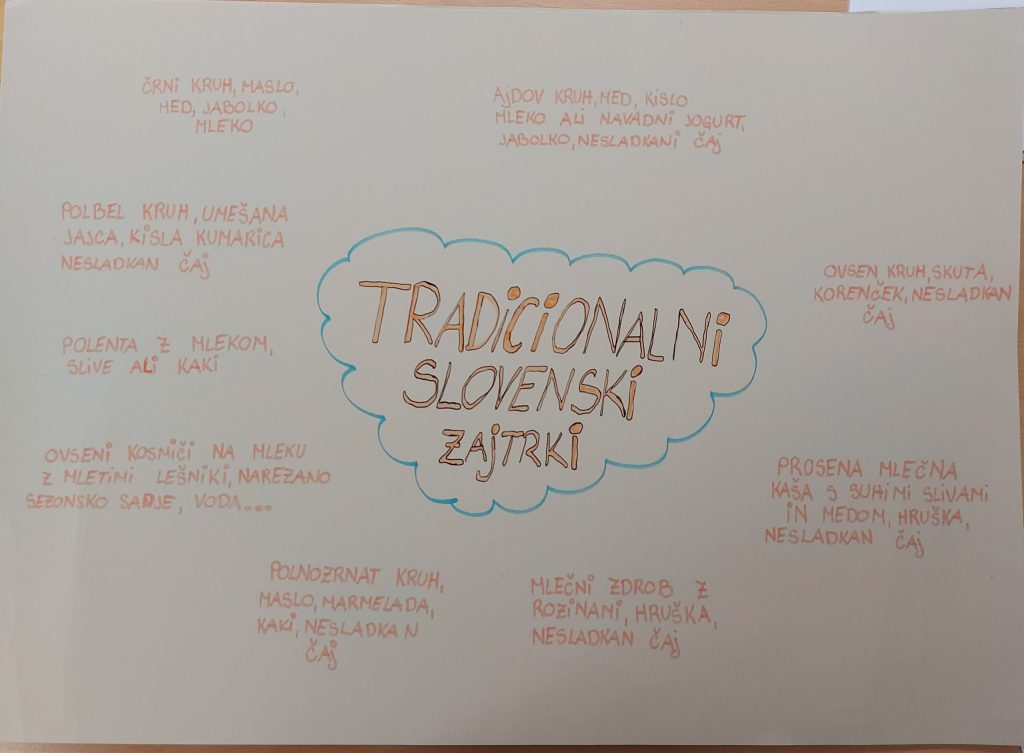 ČRNI KRUH, MASLO,
MED, JABOLKO,
MLEKO
AJDOV KRUH, MED, KISLO
MLEKO ALI NAVADNI JOGURT,
JABOLKO, NESLADKANI ČAJ
POLBEL KRUH, UMEŠANA
JAJCA, KISLA KUMARICA
NESLADKAN ČAJ
OVSEN KRUH, SKUTA,
KORENČEK, NESLADKAN
ČAJ
TRADICIONALNI
SLOVENSKI
ZAJTRKI
POLENTA Z MLEKOM,
SLIVE ALI KAKI
OVSENI KOSMIČI NA MLEKU
Z MLETIMI LEŠNIKI, NAREZANO
SEZONSKO SADJE, VODA...
PROSENA MLEČNA
KAŠA S SUHIMI SLIVAMI
IN MEDOM, HRUŠKA,
NESLADKAN ČAJ
POLNOZRNAT KRUH,
MASLO, MARMELADA,
KAKI, NESLADKAN
ČAJ
MLEČNI ZDROB Z
ROZINAMI, HRUŠKA,
NESLADKAN ČAJ